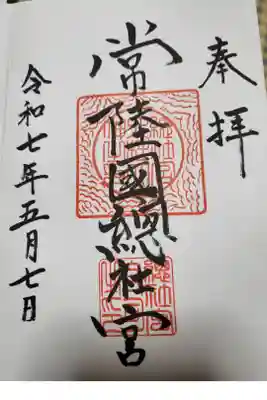 奉拝
常陸國總社宮
令和七年五月七日